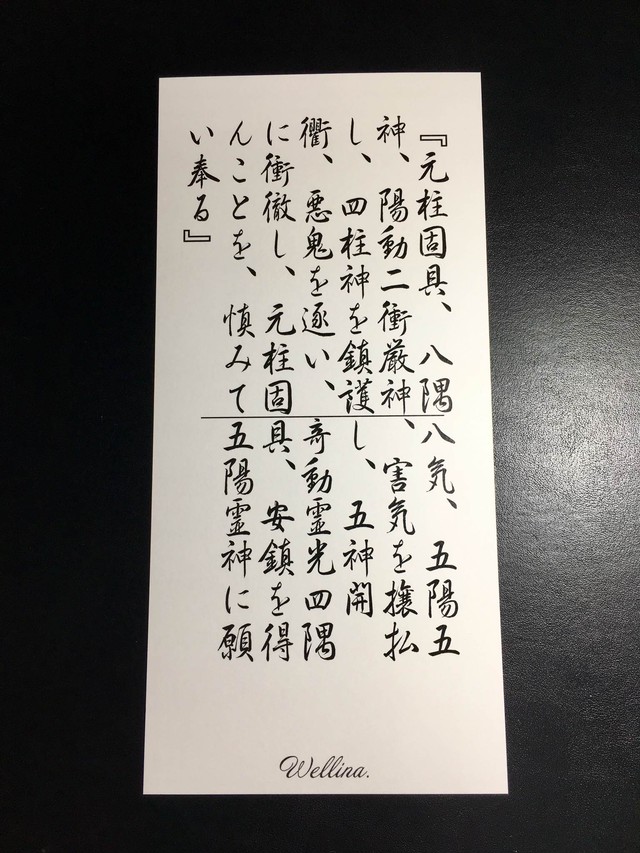 『元柱固具、八隅八気、五陽五
神、陽動二衝厳神、害気を攘払
し、四柱神を鎮護し、五神開
衢、悪鬼を逐い、奇動霊光四隅
に衝徹し、元柱固具、安鎮を得
んことを、慎みて五陽霊神に願
い奉る』
Wellina.